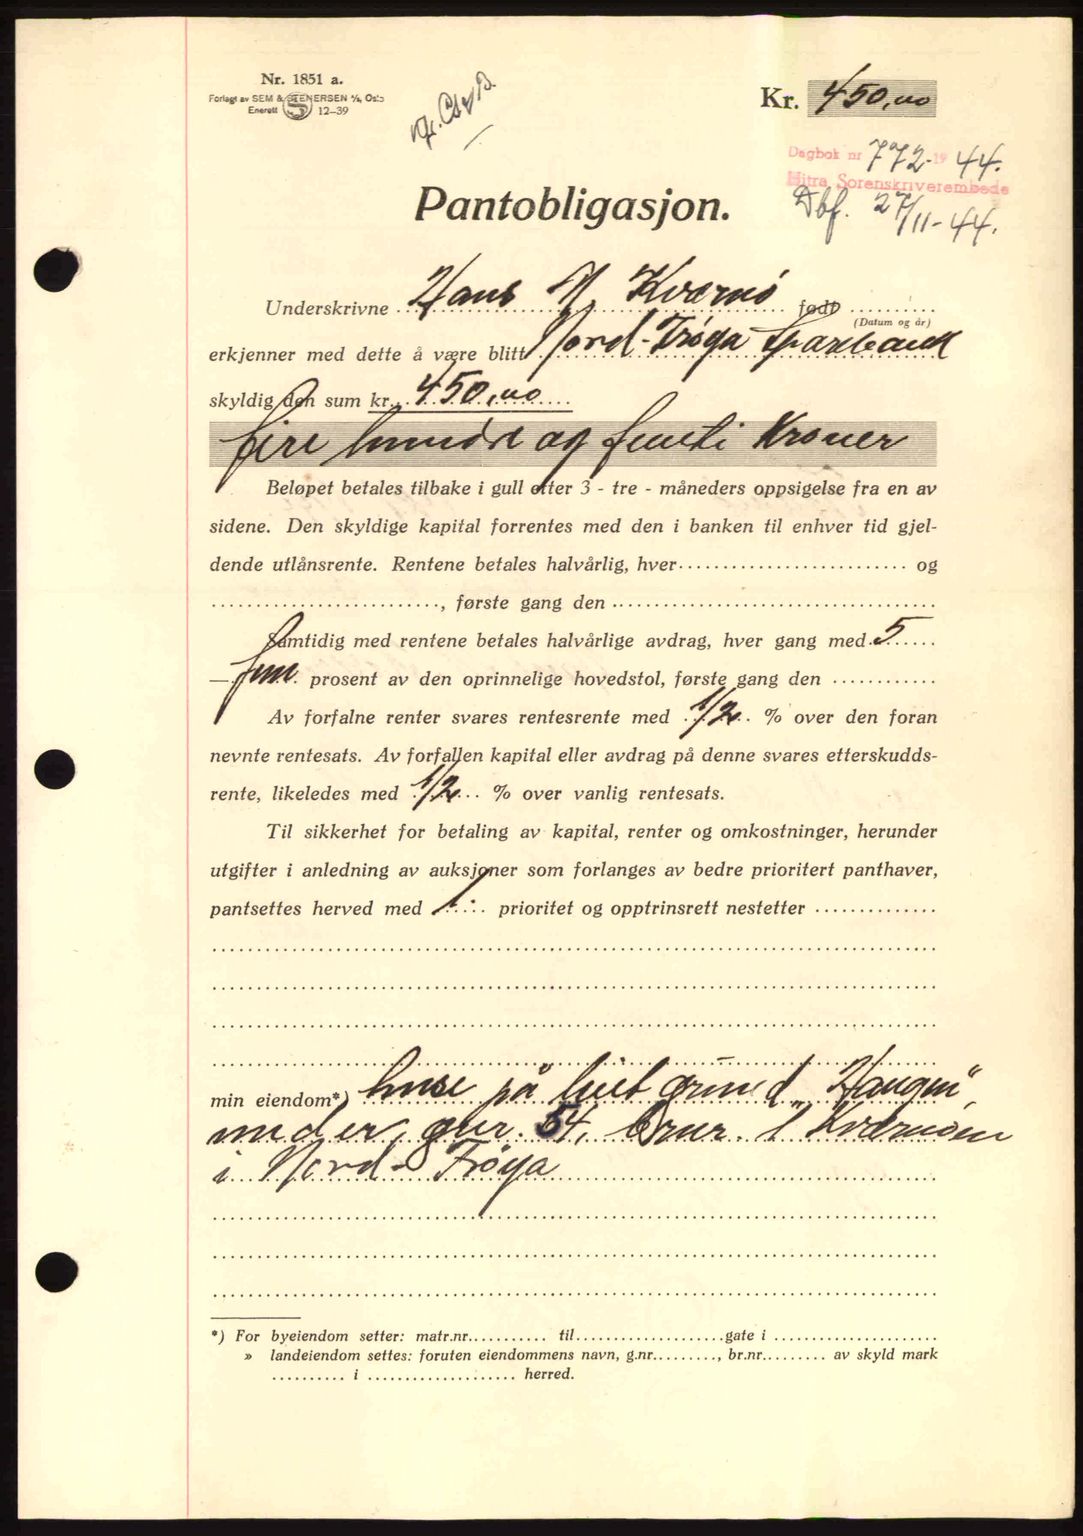 Nr. 1851 a.
Forlagt av SEM & STENERSEN A/S, Oslo
Enerett S 12-39
Kr. 450,00
Dagbok nr 772 19 44.
Hitra Sorenskriverembede
Dbf. 27/11-44.
Pantobligasjon.
Underskrivne Hans N. Kværnø født
(Datum og år)
erkjenner med dette å være blitt Nord-Frøya Sparebank
skyldig den sum kr. 450,00
fire hundre og femti Kroner
Beløpet betales tilbake i gull etter 3 - tre - måneders oppsigelse fra en av
sidene. Den skyldige kapital forrentes med den i banken til enhver tid gjel-
dende utlånsrente. Rentene betales halvårlig, hver .......... og
.........., første gang den ..........
Samtidig med rentene betales halvårlige avdrag, hver gang med 5
— fem prosent av den oprinnelige hovedstol, første gang den ..........
Av forfalne renter svares rentesrente med 1/2 % over den foran
nevnte rentesats. Av forfallen kapital eller avdrag på denne svares etterskudds-
rente, likeledes med 1/2 % over vanlig rentesats.
Til sikkerhet for betaling av kapital, renter og omkostninger, herunder
utgifter i anledning av auksjoner som forlanges av bedre prioritert panthaver,
pantsettes herved med 1. prioritet og opptrinsrett nestetter ..........
min eiendom*) huse på leiet grund „Haugen“,
under gnr. 54, brnr. 1 Kværnøen
i Nord-Frøya
*) For byeiendom setter: matr.nr.......... til.......... gate i ..........
» landeiendom settes: foruten eiendommens navn, g.nr.........., br.nr.......... av skyld mark
.......... i .......... herred.